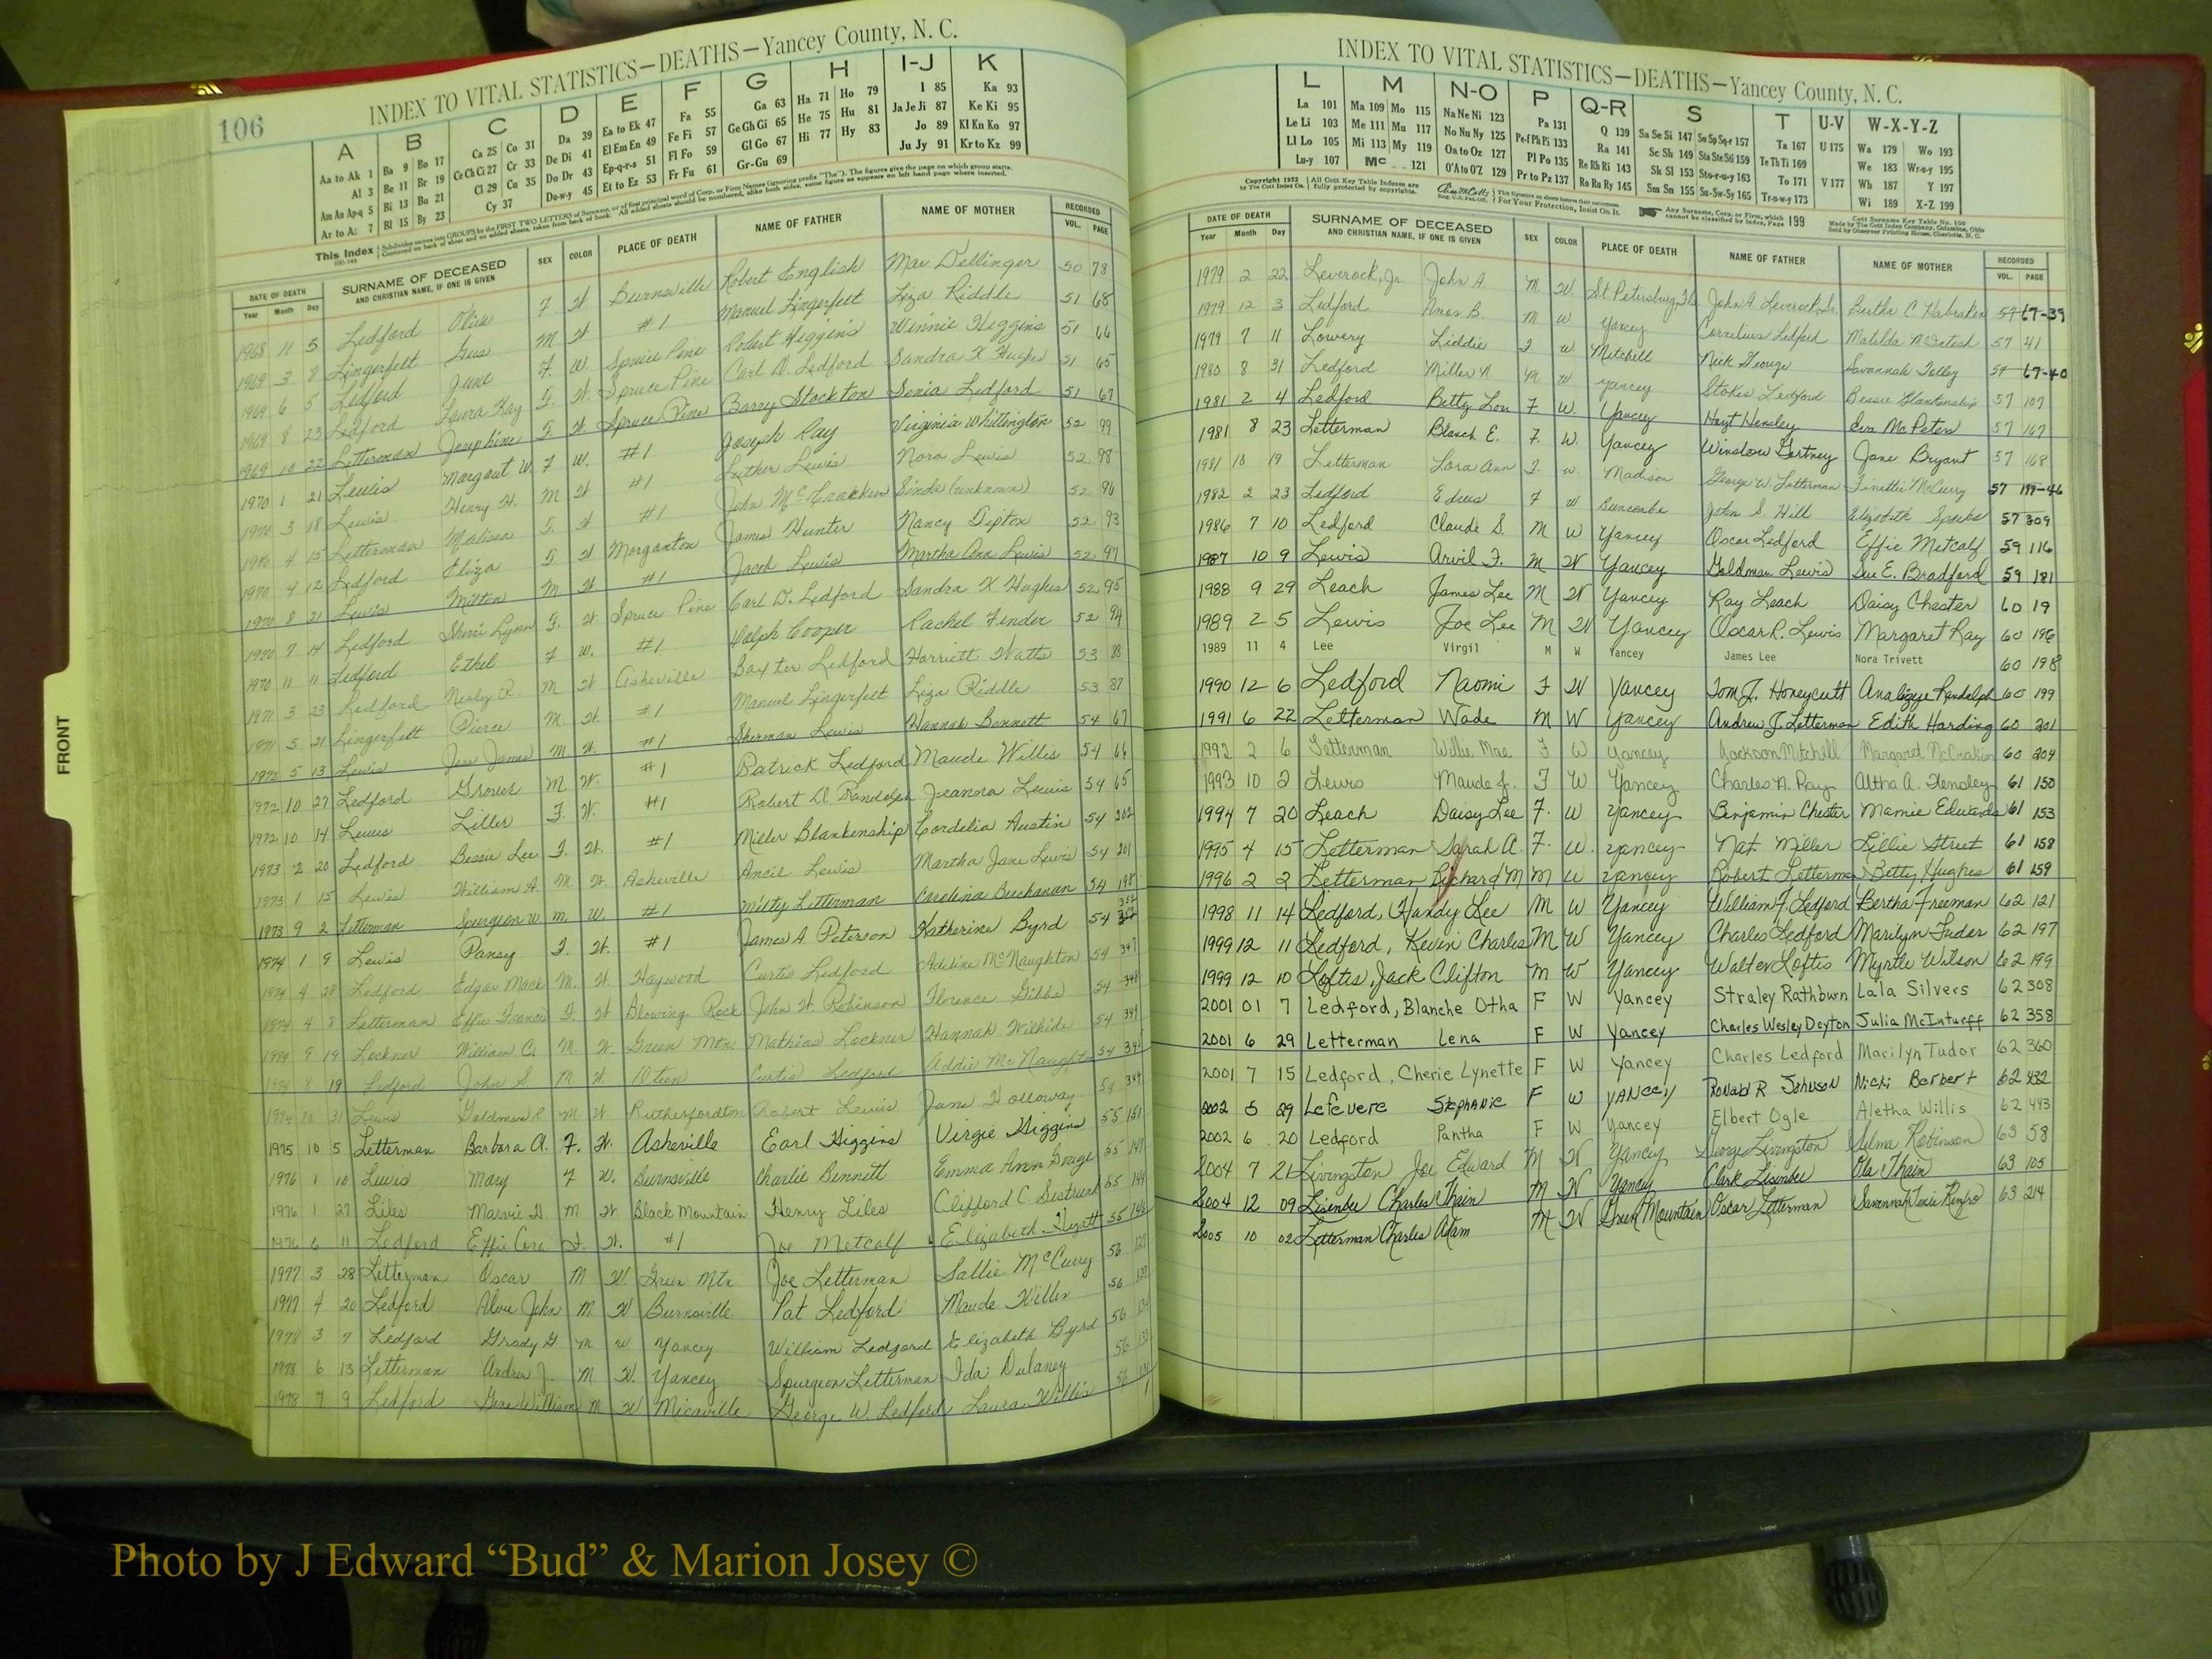 INDEX TO VITAL STATISTICS—DEATHS—Yancey County, N. C.
106
A B C D E F G H I-J K
Aa to Ak 1 Ba 9 Bo 17 Ca 25 Co 31 Da 39 Ea to Ek 47 Fa 55 Ga 63 Ha 71 Ho 79 I 85 Ka 93
Al 3 Be 11 Br 19 Ce Ch Ci 27 Cr 33 De Di 41 El Em En 49 Fe Fi 57 Ge Gh Gi 65 He 75 Hu 81 Ja Je Ji 87 Ke Ki 95
Am An Ap-q 5 Bi 13 Bu 21 Cl 29 Cu 35 Do Dr 43 Ep-q-r-s 51 Fl Fo 59 Gl Go 67 Hi 77 Hy 83 Jo 89 Kl Kn Ko 97
Ar to Az 7 Bl 15 By 23 Cy 37 Du-w-y 45 Et to Ez 53 Fr Fu 61 Gr-Gu 69 Ju Jy 91 Kr to Kz 99
DATE OF DEATH SURNAME OF DECEASED SEX COLOR PLACE OF DEATH NAME OF FATHER NAME OF MOTHER RECORDED
Year Month Day AND CHRISTIAN NAME, IF ONE IS GIVEN VOL. PAGE
1968 11 5 Ledford Olive F W Burnsville Robert English Mae Dellinger 50 78
1969 3 8 Lingerfelt Gus M W #1 Manuel Lingerfelt Liza Riddle 51 68
1969 6 5 Ledford June F. W. Spruce Pine Robert Higgins Winnie Higgins 51 66
1969 8 23 Ledford Laura Kay F. W. Spruce Pine Carl D. Ledford Sandra K Hughes 51 65
1969 10 22 Letterman Josephine F. W Spruce Pine Barry Stockton Senia Ledford 51 67
1970 1 21 Lewis Margaret W. F W. #1 Joseph Ray Virginia Whittington 52 99
1970 3 18 Lewis Henry H. M W #1 Luther Lewis Nora Lewis 52 98
1970 4 15 Letterman Malissa F. W #1 John McCracken Sinda (unknown) 52 96
1970 4 12 Ledford Eliza F W Morganton James Hunter Nancy Tipton 52 93
1970 8 21 Lewis Milton M W #1 Jacob Lewis Martha Ann Lewis 52 97
1970 7 14 Ledford Sherri Lynn F. W. Spruce Pine Carl D. Ledford Sandra K Hughes 52 95
1970 11 11 Ledford Ethel F W. #1 Dolph Cooper Rachel Fender 52 94
1971 3 23 Ledford Nealey R. M W Asheville Baxter Ledford Harriett Watts 53 88
1971 5 21 Lingerfelt Pierce M. W. #1 Manuel Lingerfelt Liza Riddle 53 87
1972 5 13 Lewis Jess James M W. #1 Sherman Lewis Hannah Bennett 54 67
1972 10 27 Ledford Grover M W. #1 Patrick Ledford Maude Willis 54 66
1972 10 14 Lewis Liller F. W. #1 Robert D. Randolph Jeanora Lewis 54 65
1973 2 20 Ledford Bessie Lee F. W. #1 Miller Blankenship Cordelia Austin 54 202
1973 1 15 Lewis William A. M. W. Asheville Ancil Lewis Martha Jane Lewis 54 201
1973 9 2 Letterman Spurgeon W. M. W. #1 Milty Letterman Carolina Buchanan 54 198
1974 1 9 Lewis Pansy F. W. #1 James A. Peterson Katherine Byrd 54
1974 4 28 Ledford Edgar Mack M. W. Haywood Curtis Ledford Adeline McNaughton 54 347
1974 4 8 Letterman Effie Frances F. W Blowing Rock John W. Robinson Florence Gibbs 54 348
1974 9 19 Lockner William C. M. W. Green Mtn. Mathias Lockner Hannah 54 349
1974 8 19 Ledford John S. M W. Oteen Curtis Ledford Addie McNaughton 54
1974 10 31 Lewis Goldman R. M W Rutherfordton Robert Lewis Jane Holloway 54
1975 10 5 Letterman Barbara A. F. W. Asheville Earl Higgins Virgie Higgins 55 151
1976 1 10 Lewis Mary F W. Burnsville Charlie Bennett Emma Ann 55
1976 1 27 Liles Marvie H. M W. Black Mountain Henry Liles Clifford C Sestrunk 55
1976 6 11 Ledford Effie Cora F. W. #1 Joe Metcalf Elizabeth Hyatt 55
1977 3 28 Letterman Oscar M W. Green Mtn Joe Letterman Sallie McCurry 56
1977 4 20 Ledford Alvie John M. W Burnsville Pat Ledford Maude Willis 56
1978 3 7 Ledford Grady G M W Yancey William Ledford Elizabeth Byrd 56 134
1978 6 13 Letterman Andrew J. M. W. Yancey Spurgeon Letterman Ida Dulaney 56
1978 7 9 Ledford Gene William M W Micaville George W. Ledford Laura Willis 56
FRONT
INDEX TO VITAL STATISTICS—DEATHS—Yancey County, N. C.
L M N-O P Q-R S T U-V W-X-Y-Z
La 101 Ma 109 Mo 115 Na Ne Ni 123 Pa 131 Q 139 Sa Se Si 147 So Sp Sq-r 157 Ta 167 U 175 Wa 179 Wo 193
Le Li 103 Me 111 Mu 117 No Nu Ny 125 Pe-f Ph Pi 133 Ra 141 Sc Sh 149 Sta Ste Sti 159 Te Th Ti 169 We 183 Wr-u-y 195
Ll Lo 105 Mi 113 My 119 Oa to Oz 127 Pl Po 135 Re Rh Ri 143 Sk Sl 153 Sto-r-u-y 163 To 171 V 177 Wh 187 Y 197
Lu-y 107 Mc 121 O'A to O'Z 129 Pr to Pz 137 Ro Ru Ry 145 Sm Sn 155 Su-Sw-Sy 165 Tr-u-w-y 173 Wi 189 X-Z 199
DATE OF DEATH SURNAME OF DECEASED SEX COLOR PLACE OF DEATH NAME OF FATHER NAME OF MOTHER RECORDED
Year Month Day AND CHRISTIAN NAME, IF ONE IS GIVEN VOL. PAGE
1979 2 22 Leverock, Jr. John A. M. W. St. Petersburg, Fla John A Leverock, Sr. Bertha C Habraken 57 67-39
1979 12 3 Ledford Amos B. M W Yancey Cornelius Ledford Matilda McIntosh 57 41
1979 7 11 Lowery Liddie F W Mitchell Nick George Savannah Tolley 57 67-40
1980 8 31 Ledford Miller N M W Yancey Stokes Ledford Bessie Blankenship 57 107
1981 2 4 Ledford Betty Lou F W. Yancey Hoyt Hensley Eva McPeters 57 167
1981 8 23 Letterman Blanch E. F. W. Yancey Winslow Gortney Jane Bryant 57 168
1981 10 19 Letterman Lora Ann F. W. Madison George W. Letterman Finettie McCurry 57 199-46
1982 2 23 Ledford Edens F W Buncombe John S. Hill Elizabeth Sparks 57 309
1986 7 10 Ledford Claude S. M W Yancey Oscar Ledford Effie Metcalf 59 116
1987 10 9 Lewis Arvil F. M W Yancey Goldman Lewis Sue E. Bradford 59 181
1988 9 29 Leach James Lee M W Yancey Ray Leach Daisy Chester 60 19
1989 2 5 Lewis Joe Lee M W Yancey Oscar R. Lewis Margaret Ray 60 196
1989 11 4 Lee Virgil M W Yancey James Lee Nora Trivett 60 198
1990 12 6 Ledford Naomi F W Yancey Tom J. Honeycutt Analizzie Randolph 60 199
1991 6 22 Letterman Wade M W Yancey Andrew J. Letterman Edith Harding 60 201
1992 2 6 Letterman Willie Mae F W Yancey Jackson Mitchell Margaret McCrakin 60 204
1993 10 2 Lewis Maude J. F W Yancey Charles N. Ray Altha A. Hensley 61 150
1994 7 20 Leach Daisy Lee F. W Yancey Benjamin Chester Mamie Edwards 61 153
1995 4 15 Letterman Sarah A. F. W. Yancey Nat Miller Lillie Street 61 158
1996 2 2 Letterman Richard M M W Yancey Robert Letterman Betty Hughes 61 159
1998 11 14 Ledford, Handy Lee M W Yancey William F. Ledford Bertha Freeman 62 121
1999 12 11 Ledford, Kevin Charles M W Yancey Charles Ledford Marilyn Tudor 62 197
1999 12 10 Loftis, Jack Clifton M W Yancey Walter Loftis Myrtle Wilson 62 199
2001 01 7 Ledford, Blanche Otha F W Yancey Straley Rathburn Lala Silvers 62 308
2001 6 29 Letterman Lena F W Yancey Charles Wesley Deyton Julia McInturff 62 358
2001 7 15 Ledford, Cherie Lynette F W Yancey Charles Ledford Marilyn Tudor 62 360
2002 5 29 Lefevere Stephanie F W YANCEY Ronald R Johnson Nicki Berbert 62 432
2002 6 20 Ledford Pantha F W Yancey Elbert Ogle Aletha Willis 62 443
2004 7 21 Livingston Joe Edward M W Yancey George Livingston Selma Robinson 63 58
2004 12 09 Lisenbee Charles Thain M W Yancey Clark Lisenbee Ola Thain 63 105
2005 10 02 Letterman Charles Adam M W Green Mountain Oscar Letterman Savannah Texie Renfro 63 214
Photo by J Edward “Bud” & Marion Josey ©